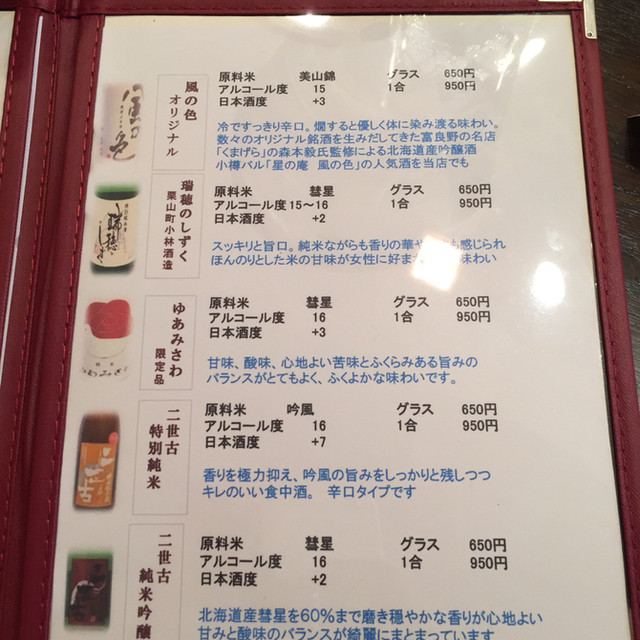 風の色
オリジナル
原料米 美山錦 グラス 650円
アルコール度 15 1合 950円
日本酒度 +3
冷ですっきり辛口。燗すると優しく体に染み渡る味わい。
数々のオリジナル銘酒を生みだしてきた富良野の名店
「くまげら」の森本毅氏監修による北海道産吟醸酒
小樽バル「星の庵 風の色」の人気酒を当店でも
瑞穂のしずく
栗山町小林酒造
原料米 彗星 グラス 650円
アルコール度 15～16 1合 950円
日本酒度 +2
スッキリと旨口。純米ながらも香りの華や も感じられ
ほんのりとした米の甘味が女性に好ま 味わい
ゆあみさわ
限定品
原料米 彗星 グラス 650円
アルコール度 16 1合 950円
日本酒度 +3
甘味、酸味、心地よい苦味とふくらみある旨みの
バランスがとてもよく、ふくよかな味わいです。
二世古
特別純米
原料米 吟風 グラス 650円
アルコール度 16 1合 950円
日本酒度 +7
香りを極力抑え、吟風の旨みをしっかりと残しつつ
キレのいい食中酒。 辛口タイプです
二世古
純米吟醸
原料米 彗星 グラス 650円
アルコール度 16 1合 950円
日本酒度 +2
北海道産彗星を60%まで磨き穏やかな香りが心地よい
甘みと酸味のバランスが綺麗にまとまっています